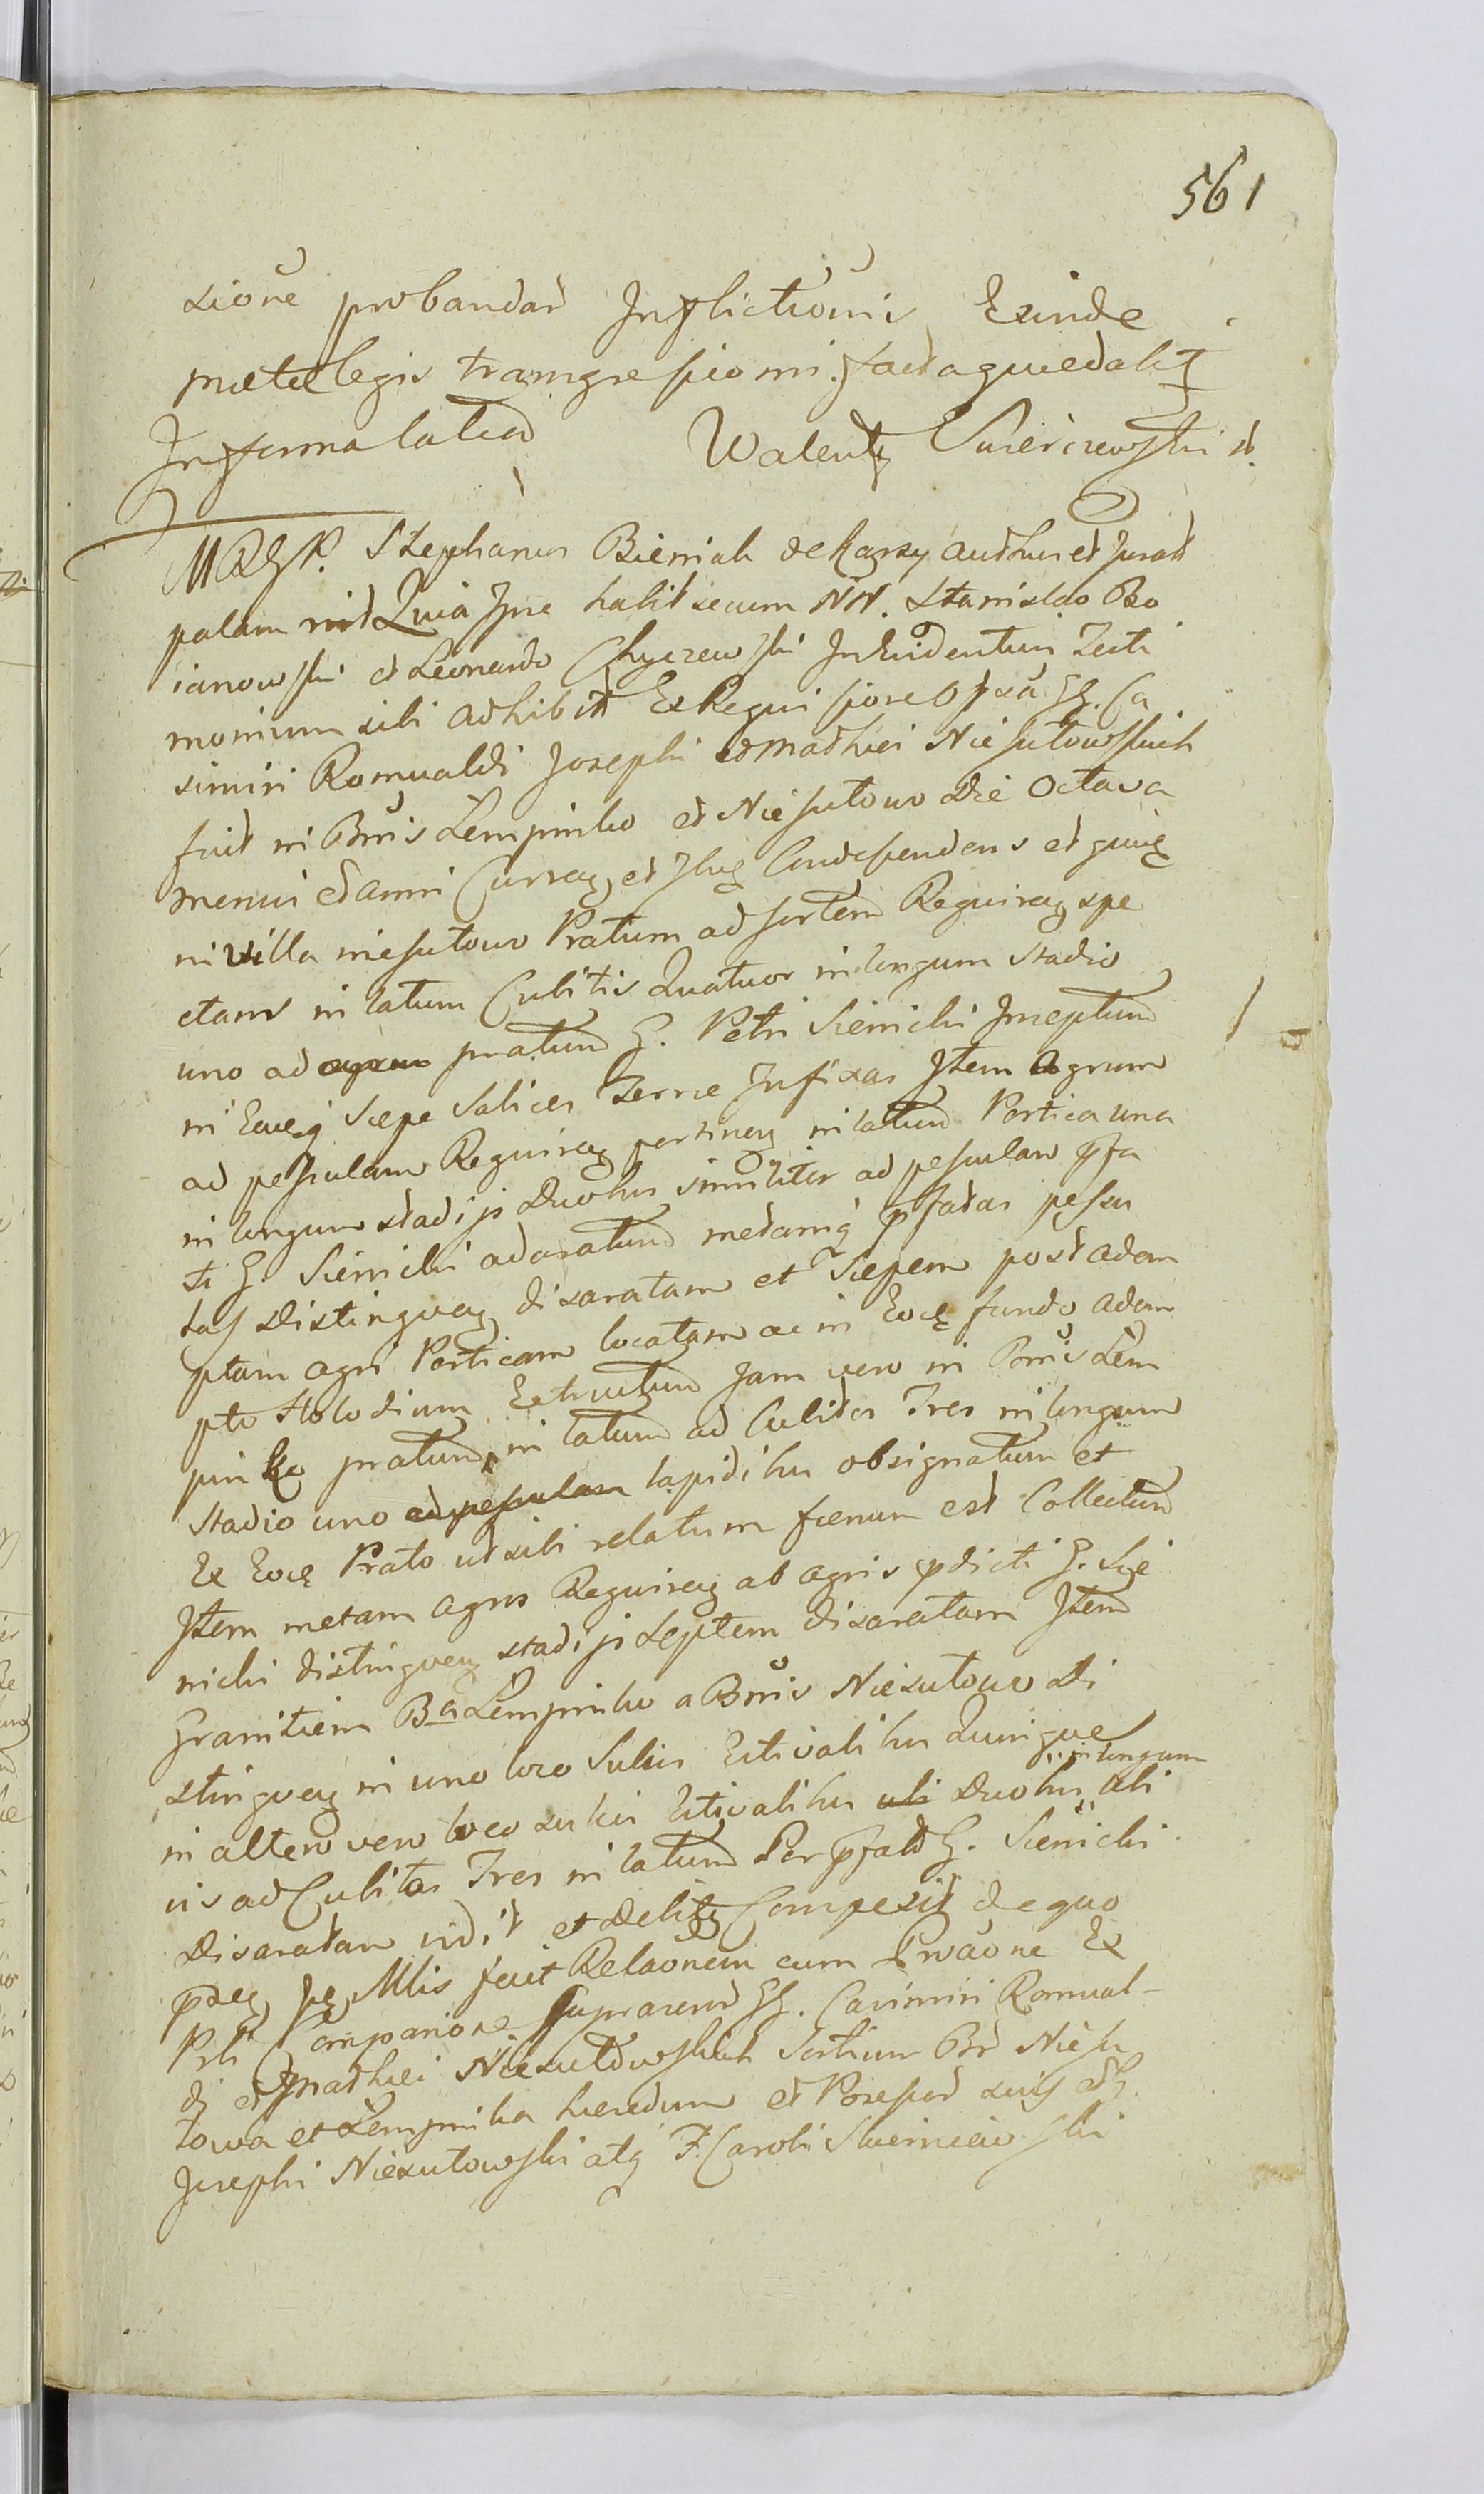 561
xione probandar Inflictionis Exinde
maetae legis transgressioni fact aquedalit
In forma lated Walenty Swierczewski
Stephanus Bieniak de Karzy authus et Jurat
palam Quia Ipse habit secum NN. Stanislao Bo
ianowski et Leonardo Chyczewski In Evidentius Testi
monium sibi adhibit Ex Requisione GG. Ca
simiri Romualdi Josephi et Mathiei Niesutowskich
fuit in Bnis Lempinko et Niesutowo Die Octava
mensis et anni Curren et Ibiq Condescendens et quiq
in Villa niesutowo Pratum ad sortem Requiren spe
ctans in latum Cubitis Quatuor in longum Stadio
uno ad agrum pratum G. Petri Sienicki Inceptum
in Eoq Saepe Salices Terrae Infixas Item Agrum
ad pessulam Requiren pertinen in latum Pertica una
in longum stadijs Duobus similiter ad pessulam pfa
ti G. Sienicki adaratum metamq pfatas pessu
las Distinguen disaratam et Saepem post adem
ptam agri Perticam locatam ac in Eoq fundo adem
pto Holodium Extructum Jam vero in Bnis Lem
pinko pratum in latum ad Cubitos Tres in longum
Stadio uno ad pessulam lapidibus obsignatum et
Ex Eoq Prato ut sibi relatum faenum est Collectum
Item metam agros Requiren ab agris pdicti G. Sie
nicki distinguen stadijs Septem disaratam Item
Granitiem Bn Lempinko a Bnis Niesutowo Di
stinguen in uno loco Sulcis Estivalibus Quinque
in longum
in altero vero loco sulcis Estivalibus ubi Duobus abi
vis ad Cubitos Tres in latum Per pfat G. Sienicki
Disaratam vidit et Debite Compexit de quo
Mlis fecit Relaonem cum Ex
Prti Comparione suprascrip GG. Casimiri Romual-
di et Mathiei Niesutowskich Sortium Br Niesu
towa et Lempinka haeredum et Possessor suis et G.
Josephi Niesutowski atq F. Caroli Skierniewski